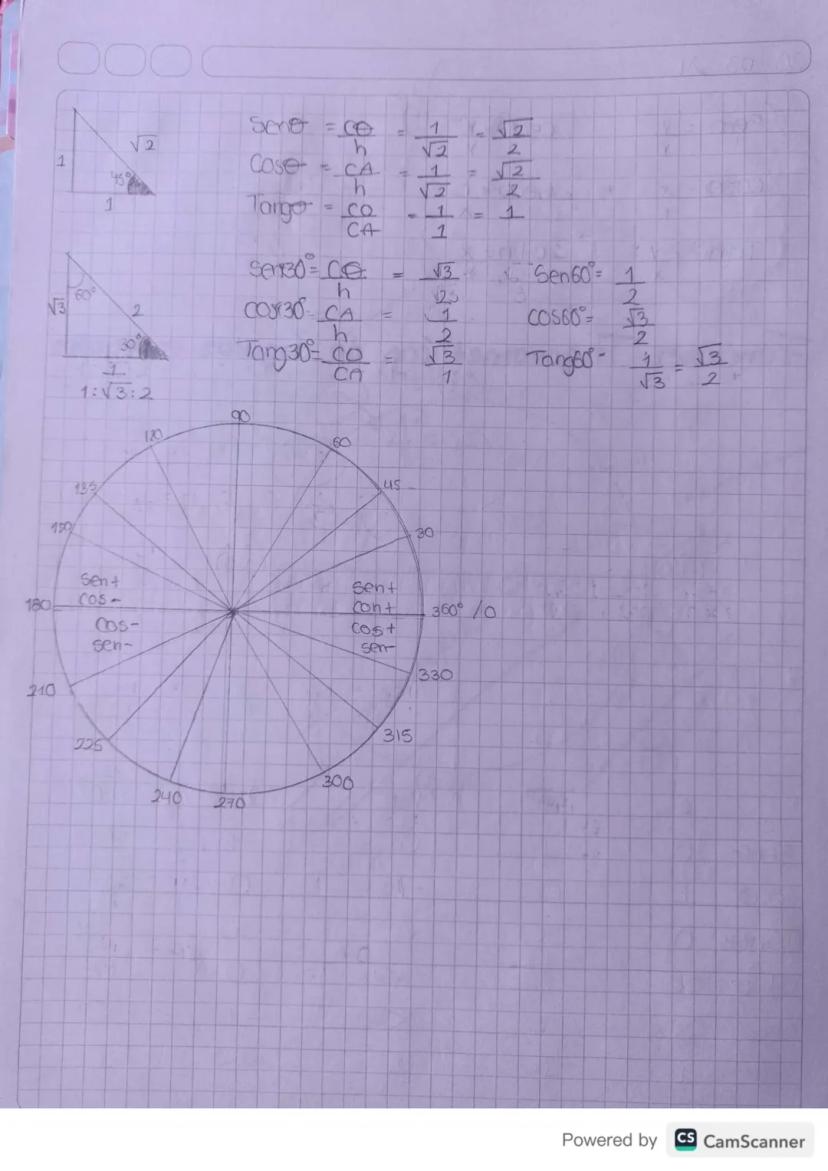 1
√2
45°
1
Senθ = CO/h = 1/√2 = √2/2
Cosθ = CA/h = 1/√2 = √2/2
Tangθ = CO/CA = 1/1 = 1
√3
60°
2
30°
1
1:√3:2
Sen30° = CO/h = √3/2
Cos30° CA/h = 1/2
Tang30° = CO/CA = √3/1
Sen60° = 1/2
COS60° = √3/2
Tang60° - 1/√3 = √3/2
90
120
60
135
45
150
30
sen+
cos-
sen+
con+
180
360° /0
cos-
sen-
cos+
sen-
210
330
225
315
240
270
300
Powered by CS CamScanner